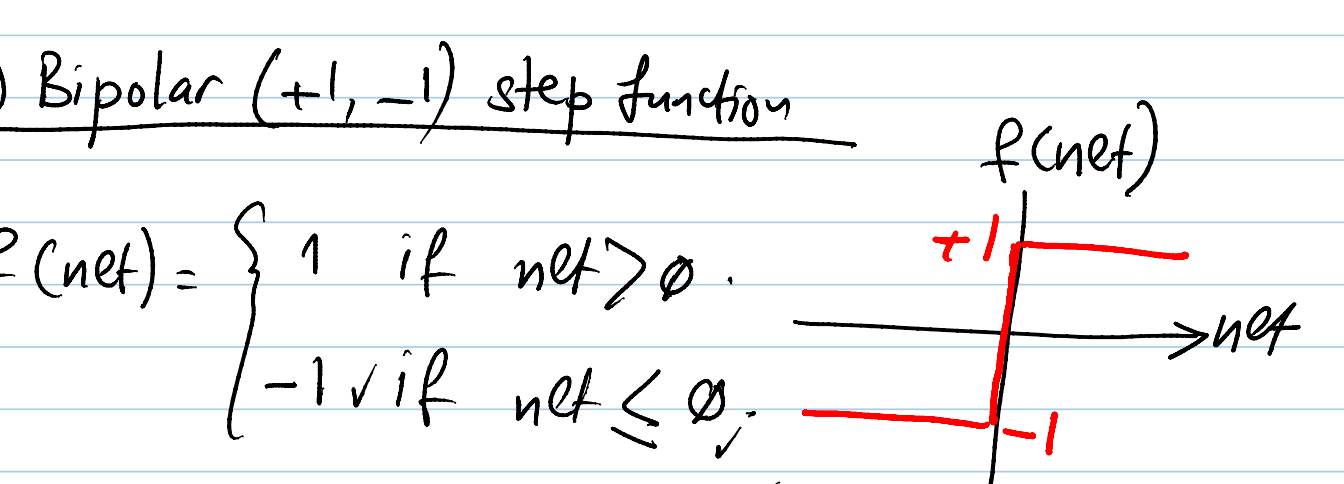 ) Bipolar (+1, -1) step function
f(net)
f(net) = { 1 if net > ø .
+1
net
-1 ✓ if net ≤ ø, ✓
-1